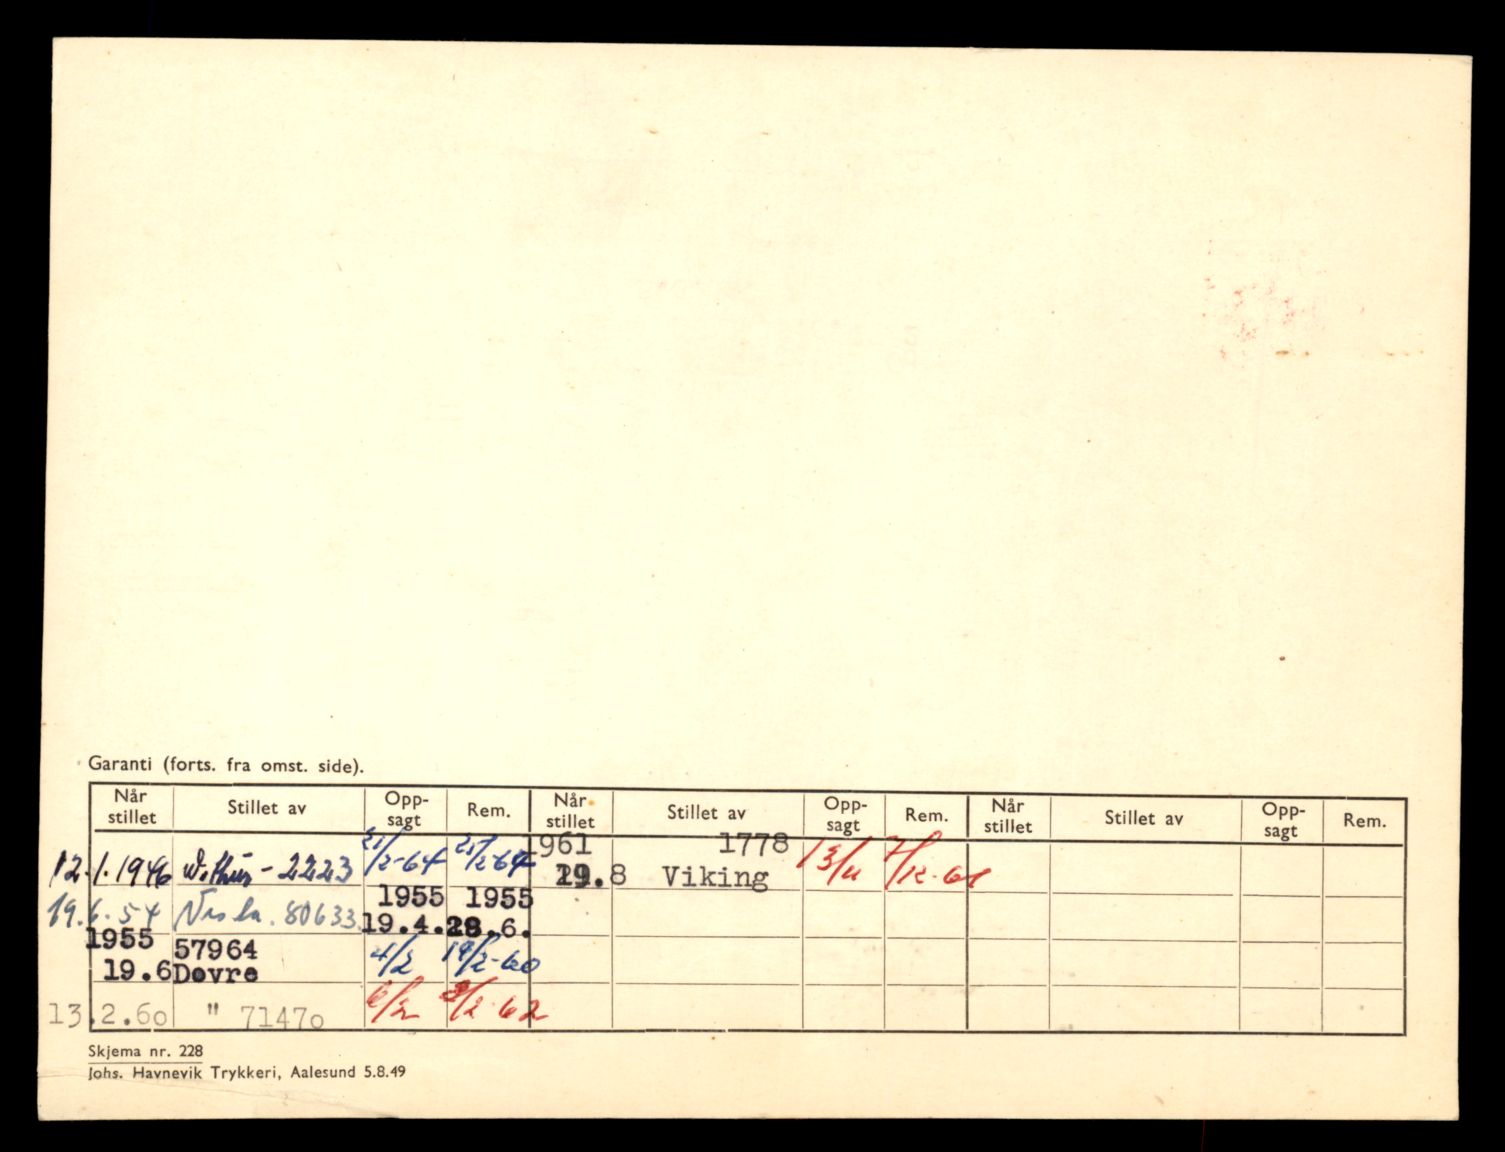 Garanti (forts. fra omst. side).
Når stillet Stillet av Opp-sagt Rem. Når stillet Stillet av Opp-sagt Rem. Når stillet Stillet av Opp-sagt Rem.
12.1.1946 - 2223 21/2-64 21/2-64
19.6.54 80633 1955 19.4. 1955 28.6.
1955 19.6 57964 Dovre 4/2 19/2-60
13.2.60 " 71470 6/2 2-62
1961 8 1778 Viking
Skjema nr. 228
Johs. Havnevik Trykkeri, Aalesund 5.8.49